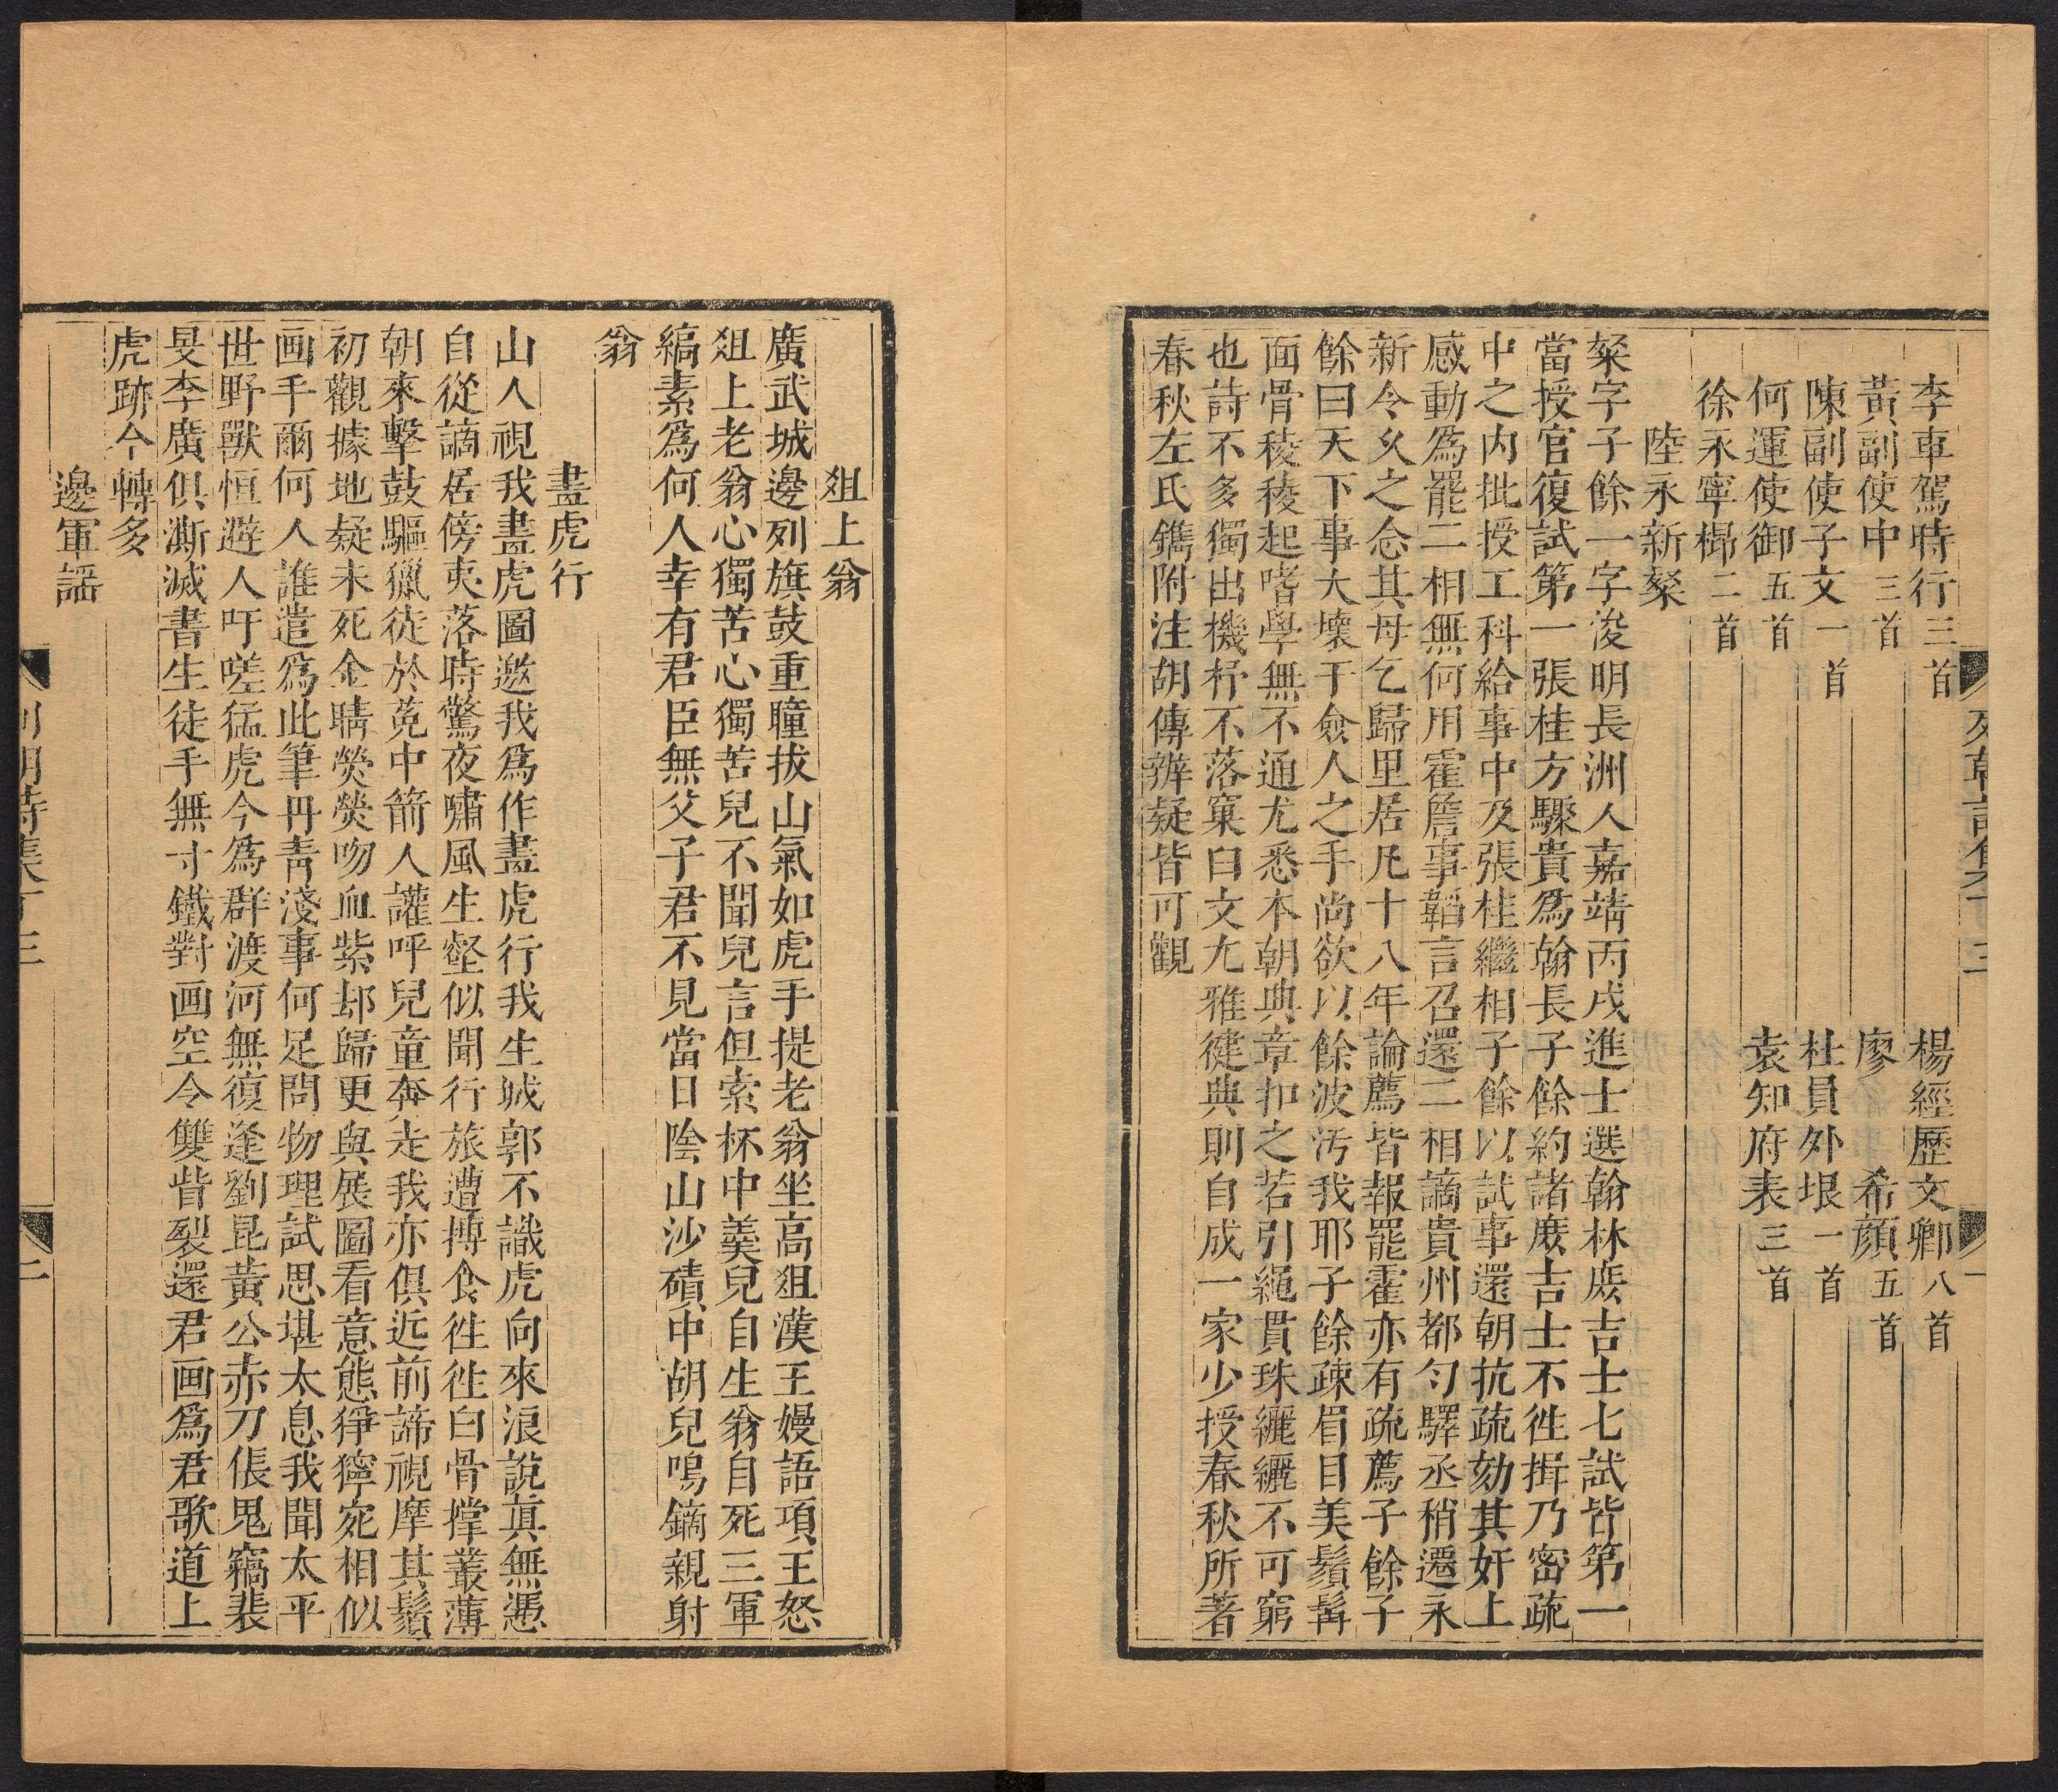 李車駕時行三首 楊經歷文卿八首
黃副使中三首 廖希顏五首
陳副使子文一首 杜員外垠一首
何運使御五首 袁知府表三首
徐永寧楊二首
陸永新粲
粲字子餘一字浚明長洲人嘉靖丙戌進士選翰林庶吉士七試皆第一
當授官復試第一張桂方驟貴為翰長子餘約諸庶吉士不徃揖乃密疏
中之內批授工科給事中及張桂繼相子餘以試事還朝抗疏劾其奸上
感動為罷二相無何用霍詹事韜言召還二相謫貴州都勻驛丞稍遷永
新令乆之念其母乞歸里居凡十八年論薦皆報罷霍亦有疏薦子餘子
餘曰天下事大壞于僉人之手尚欲以餘波汚我耶子餘疎眉目美鬚髯
面骨稜稜起嗜學無不通尤悉本朝典章扣之若引繩貫珠纚纚不可窮
也詩不多獨出機杼不落窠臼文尤雅健典則自成一家少授春秋所著
春秋左氏鐫附注胡傳辨疑皆可觀
爼上翁
廣武城邊列旗鼓重瞳拔山氣如虎手提老翁坐高爼漢王嫚語項王怒
爼上老翁心獨苦心獨苦兒不聞兒言但索杯中羮兒自生翁自死三軍
縞素爲何人幸有君臣無父子君不見當日陰山沙磧中胡兒鳴鏑親射
翁
畫虎行
山人視我畫虎圖邀我爲作畫虎行我生城郭不識虎向來浪說眞無憑
自從謫居傍夷落時驚夜嘯風生壑似聞行旅遭搏食徃徃白骨撑叢薄
朝來擊鼓驅獵徒於菟中箭人讙呼兒童奔走我亦俱近前諦視摩其鬚
初觀據地疑未死金睛熒熒吻血紫却歸更與展圖看意態猙獰宛相似
画手爾何人誰遣爲此筆丹靑淺事何足問物理試思堪太息我聞太平
世野獸恒避人吁嗟猛虎今爲群渡河無復逢劉昆黃公赤刀倀鬼竊裴
旻李廣俱澌滅書生徒手無寸鐵對画空令雙眥裂還君画爲君歌道上
虎跡今轉多
邊軍謡